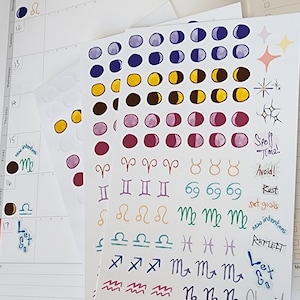 13
15
new intentions
Let
Go
Spell
Time!
Avoid!
Rest
Set goals
new intentions
REFLECT
Let
Go